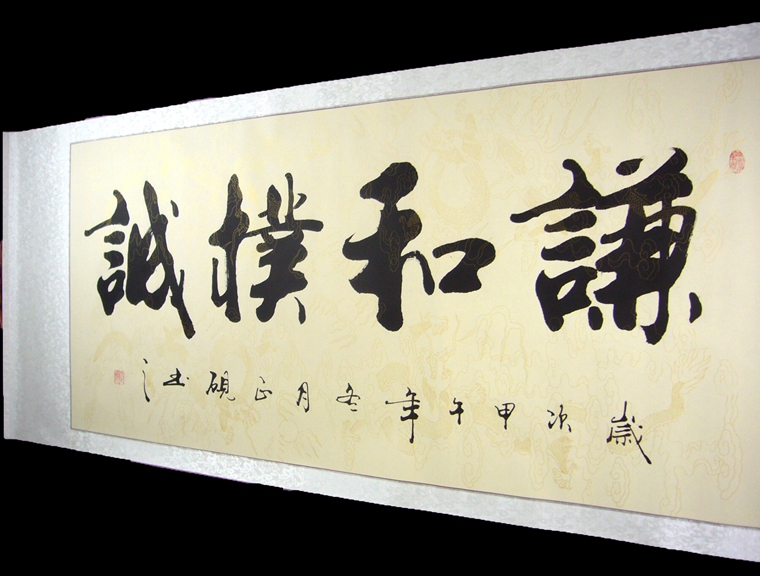 謙和樸誠
歲次甲午年冬月正硯书